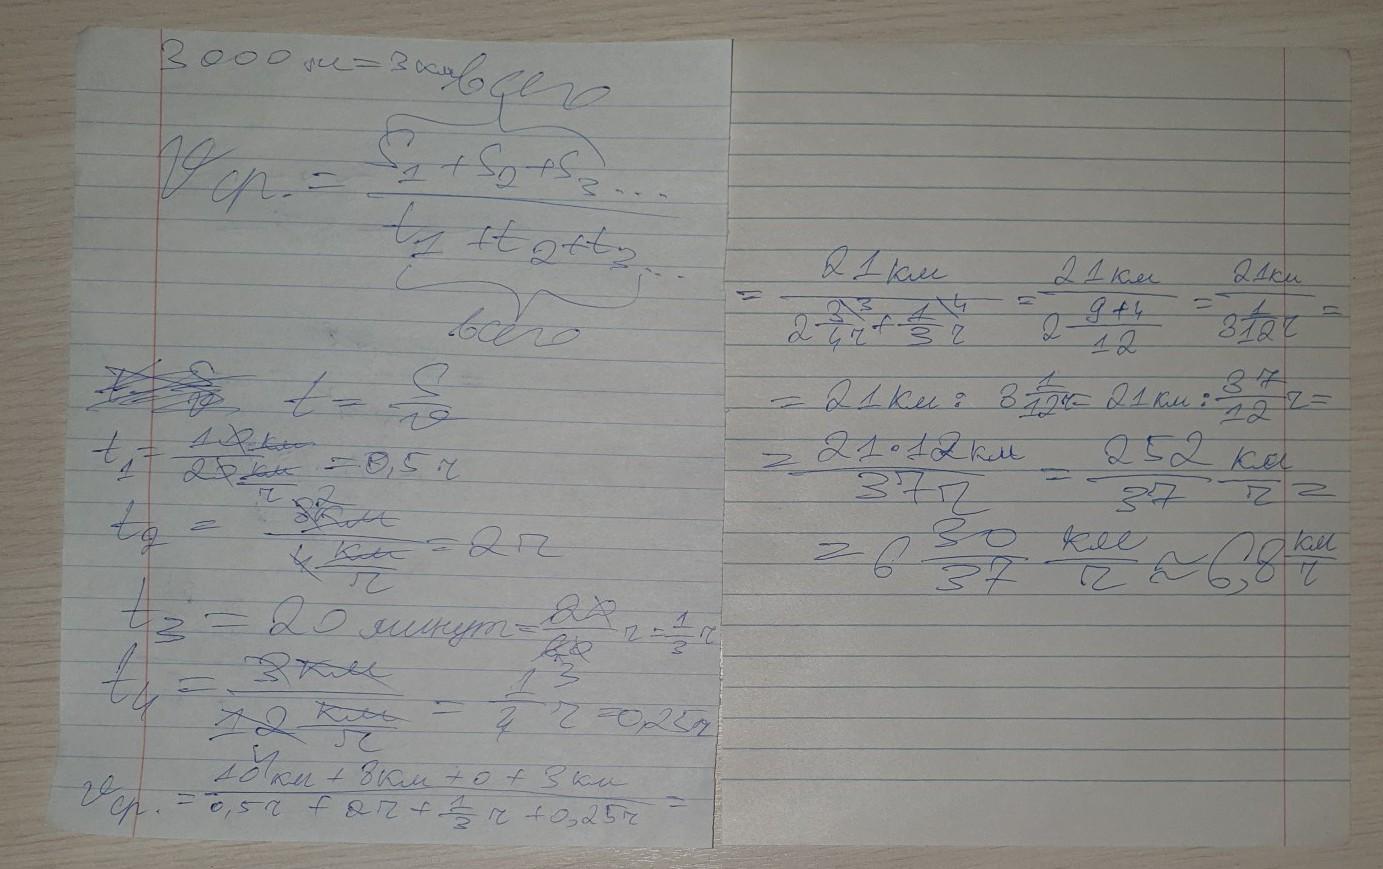 3000 м = 3 км
всего
υср. = (S1 + S2 + S3 ...) / (t1 + t2 + t3 ...)
всего
t = S/υ
t1 = 10 км / 20 км/ч = 0,5 ч
t2 = 8 км / 4 км/ч = 2 ч
t3 = 20 минут = 20/60 ч = 1/3 ч
t4 = 3 км / 12 км/ч = 1/4 ч = 0,25 ч
υср. = (10 км + 8 км + 0 + 3 км) / (0,5 ч + 2 ч + 1/3 ч + 0,25 ч) =
= 21 км / (2 3/4 ч + 1/3 ч) = 21 км / (2 (9+4)/12) = 21 км / (3 1/12 ч) =
= 21 км : 3 1/12 ч = 21 км : 37/12 ч =
= 21·12 км / 37 ч = 252/37 км/ч =
= 6 30/37 км/ч ≈ 6,8 км/ч